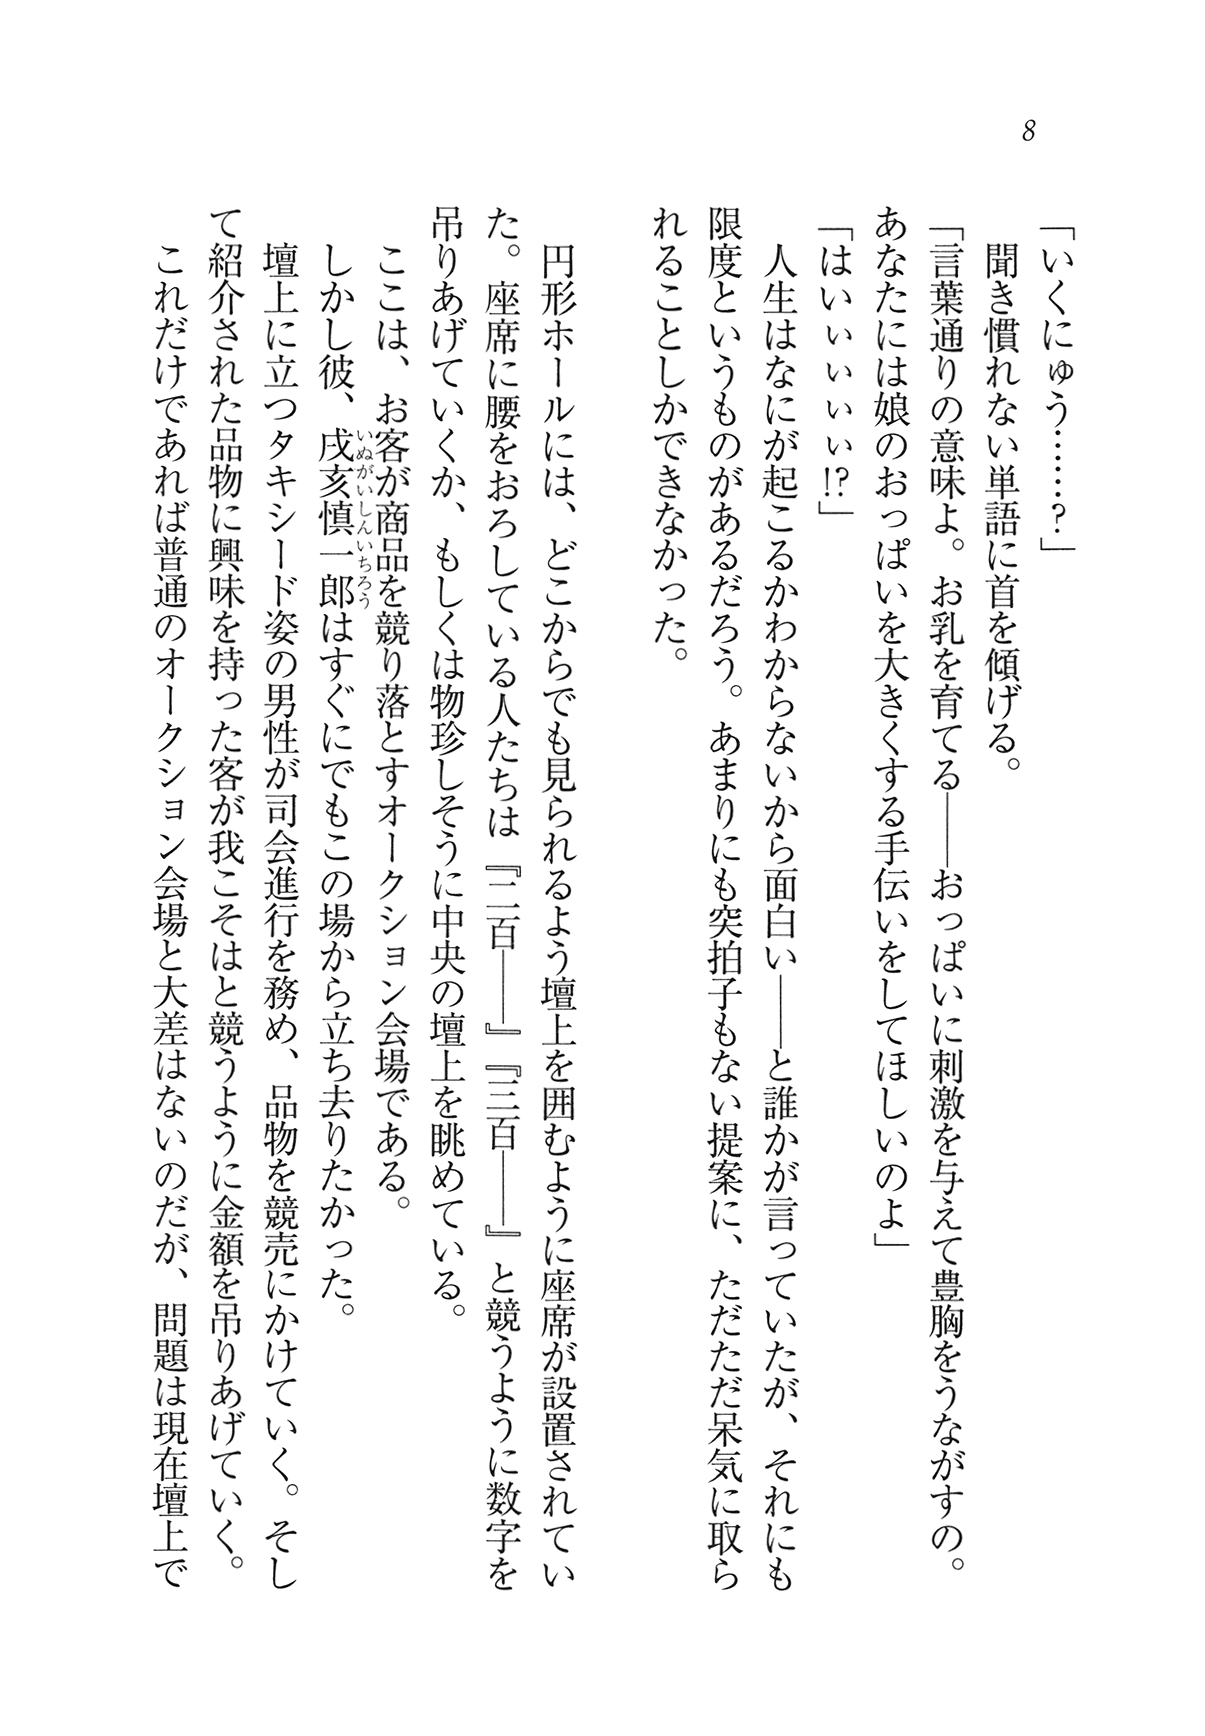 8
「いくにゅう……？」
　聞き慣れない単語に首を傾げる。
「言葉通りの意味よ。お乳を育てる――おっぱいに刺激を与えて豊胸をうながすの。
あなたには娘のおっぱいを大きくする手伝いをしてほしいのよ」
「はいぃぃぃぃ!?」
　人生はなにが起こるかわからないから面白い――と誰かが言っていたが、それにも
限度というものがあるだろう。あまりにも突拍子もない提案に、ただただ呆気に取ら
れることしかできなかった。
　円形ホールには、どこからでも見られるよう壇上を囲むように座席が設置されてい
た。座席に腰をおろしている人たちは『二百――』『三百――』と競うように数字を
吊りあげていくか、もしくは物珍しそうに中央の壇上を眺めている。
　ここは、お客が商品を競り落とすオークション会場である。
　しかし彼、戌亥慎一郎はすぐにでもこの場から立ち去りたかった。
いぬがいしんいちろう
　壇上に立つタキシード姿の男性が司会進行を務め、品物を競売にかけていく。そし
て紹介された品物に興味を持った客が我こそはと競うように金額を吊りあげていく。
　これだけであれば普通のオークション会場と大差はないのだが、問題は現在壇上で